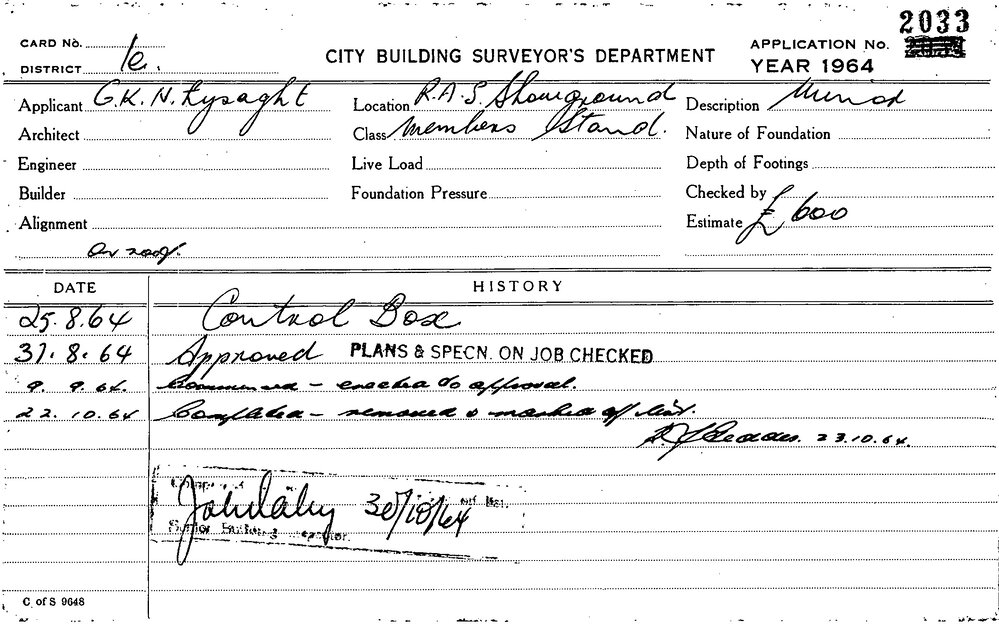 2033
CARD No.
DISTRICT 1e.
CITY BUILDING SURVEYOR'S DEPARTMENT
APPLICATION No.
YEAR 1964
Applicant G.K.N. Lysaght
Location R.A.S. Showground
Description Minor
Architect
Class Members Stand.
Nature of Foundation
Engineer
Live Load
Depth of Footings
Builder
Foundation Pressure
Checked by
Alignment
Estimate £600
on roof.
DATE
HISTORY
25.8.64 Control Box
31.8.64 Approved PLANS & SPECN. ON JOB CHECKED
9.9.64. Commenced - erected to approval.
22.10.64 Completed - removed & marked off list.
23.10.64.
off list.
John 30/10/64
Senior Building Inspector.
C of S 9648